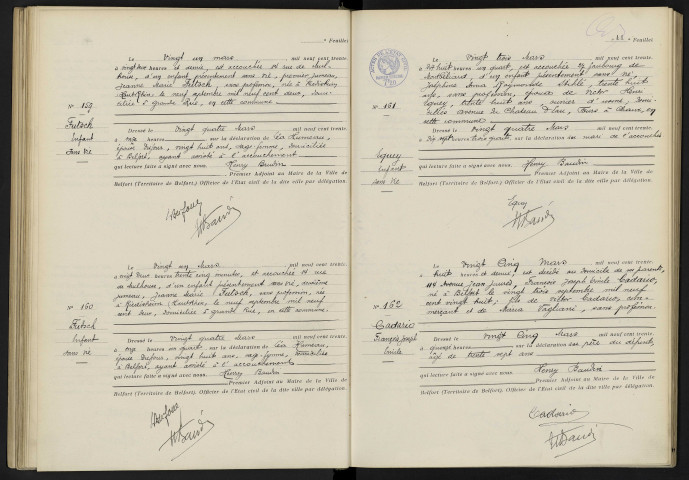 " Feuillet
Le Vingt un mars mil neuf cent trente.
à vingt deux heures et demie, est accouchée 21 rue de Mul-
house, d'un enfant présentement sans vie, premier jumeau,
Jeanne Marie Fritsch, sans profession, née à
le neuf septembre mil neuf cent deux, domi-
ciliée à Grande Rue, en cette commune
N° 159
Fritsch
Enfant
sans vie
Dressé le vingt quatre Mars mil neuf cent trente.
à onze heures sur la déclaration de Léa Humeau,
épouse Dufour, vingt huit ans, sage-femme, domiciliée
à Belfort, ayant assisté à l'accouchement
qui lecture faite a signé avec nous. Henry Baudin
Premier Adjoint au Maire de la Ville de
Belfort (Territoire de Belfort) Officier de l'Etat civil de la dite ville par délégation.
Le Vingt un Mars mil neuf cent trente.
à vingt deux heures trente cinq minutes, est accouchée 21 rue
de Mulhouse, d'un enfant présentement sans vie, deuxième
jumeau, Jeanne Marie Fritsch, sans profession, née
à le neuf septembre mil neuf
cent deux, domiciliée à Grande Rue, en cette commune.
N° 160
Fritsch
Enfant
sans vie
Dressé le vingt quatre Mars mil neuf cent trente.
à onze heures un quart sur la déclaration de Léa Humeau,
épouse Dufour, vingt huit ans, sage-femme, domiciliée
à Belfort, ayant assisté à l'accouchement
qui lecture faite a signé avec nous. Henry Baudin
Premier Adjoint au Maire de la Ville de
Belfort (Territoire de Belfort) Officier de l'Etat civil de la dite ville par délégation.
Feuillet
Le Vingt trois Mars mil neuf cent trente.
à dix huit heures un quart, est accouchée faubourg de
Montbéliard, d'un enfant présentement sans vie,
Joséphine Anna trente huit
ans, sans profession, épouse de Victor Henri
trente huit ans, ouvrier d'usine, domi-
ciliés avenue du Château d'Eau, en
cette commune
N° 161
Enfant
sans vie
Dressé le vingt quatre Mars mil neuf cent trente.
à dix sept heures trois quarts, sur la déclaration du mari de l'accouchée
qui lecture faite a signé avec nous. Henry Baudin
Premier Adjoint au Maire de la Ville de
Belfort (Territoire de Belfort) Officier de l'Etat civil de la dite ville par délégation.
Le Vingt Cinq Mars mil neuf cent trente.
à huit heures et demie, est décédé au domicile de ses parents,
119 Avenue Jean Jaurès, François Joseph Emile Cadario,
né à Belfort le vingt trois septembre mil neuf
cent vingt huit, fils de Victor Cadario, com-
merçant et de Maria Pagliani, sans profession.
N° 162
Cadario
François Joseph
Emile
Dressé le vingt Cinq Mars mil neuf cent trente.
à quatorze heures sur la déclaration du père du défunt,
âgé de trente sept ans
qui lecture faite a signé avec nous. Henry Baudin
Premier Adjoint au Maire de la Ville de
Belfort (Territoire de Belfort) Officier de l'Etat civil de la dite ville par délégation.
Cadario